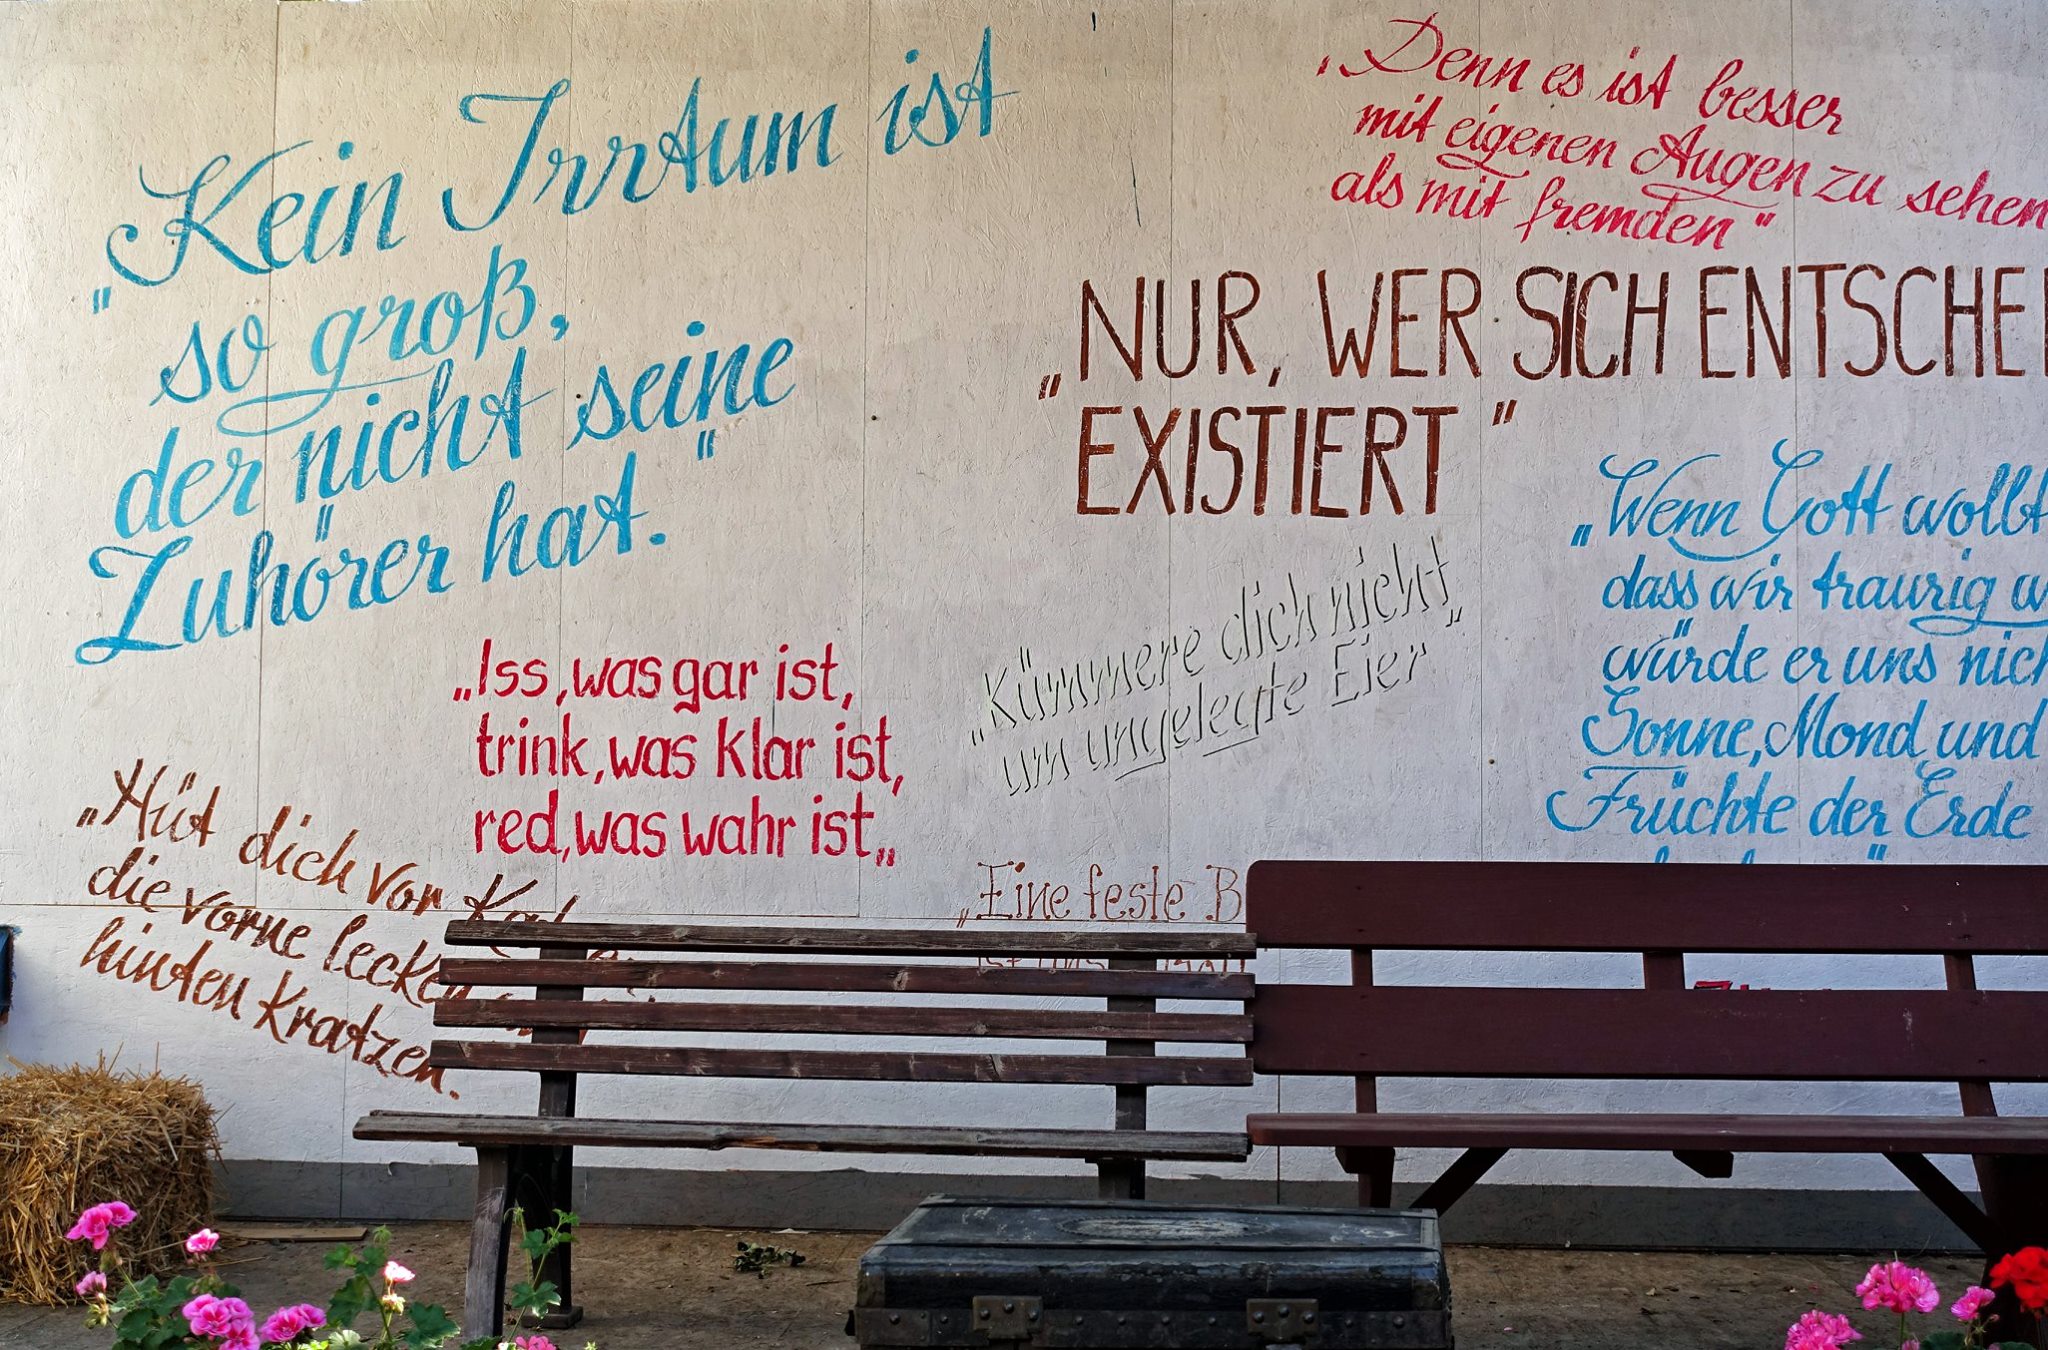 „Kein Irrtum ist
so groß,
der nicht seine
Zuhörer hat."
„Denn es ist besser
mit eigenen Augen zu sehen
als mit fremden"
„NUR, WER SICH
EXISTIERT"
„Wenn Gott wollt
dass wir traurig
würde er uns
Sonne, Mond, und
Früchte der Erde
„Kümmere dich nicht
um ungelegte Eier"
„Iss, was gar ist,
trink, was klar ist,
red, was wahr ist„
„Hüt dich vor
die vorne lecken
hinten kratzen.
„Eine feste B
ist uns